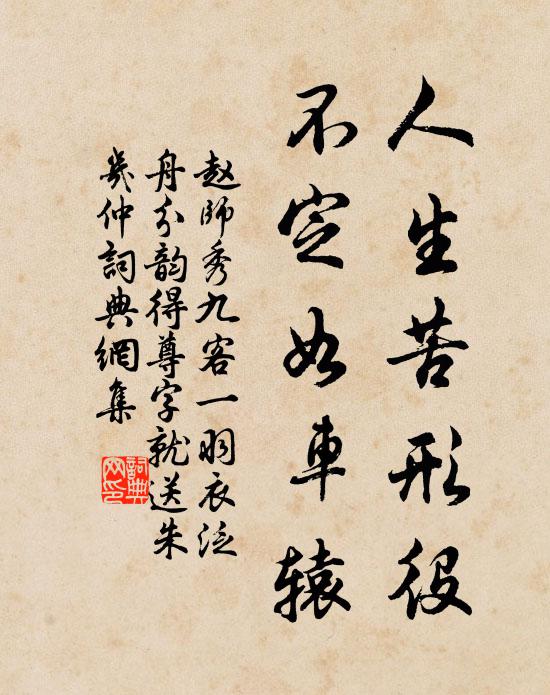 人生苦形役
不定如車辕
赵師秀九客一羽衣泛
舟分韵得尊字就送朱
幾仲詞典網集
詞典
网印